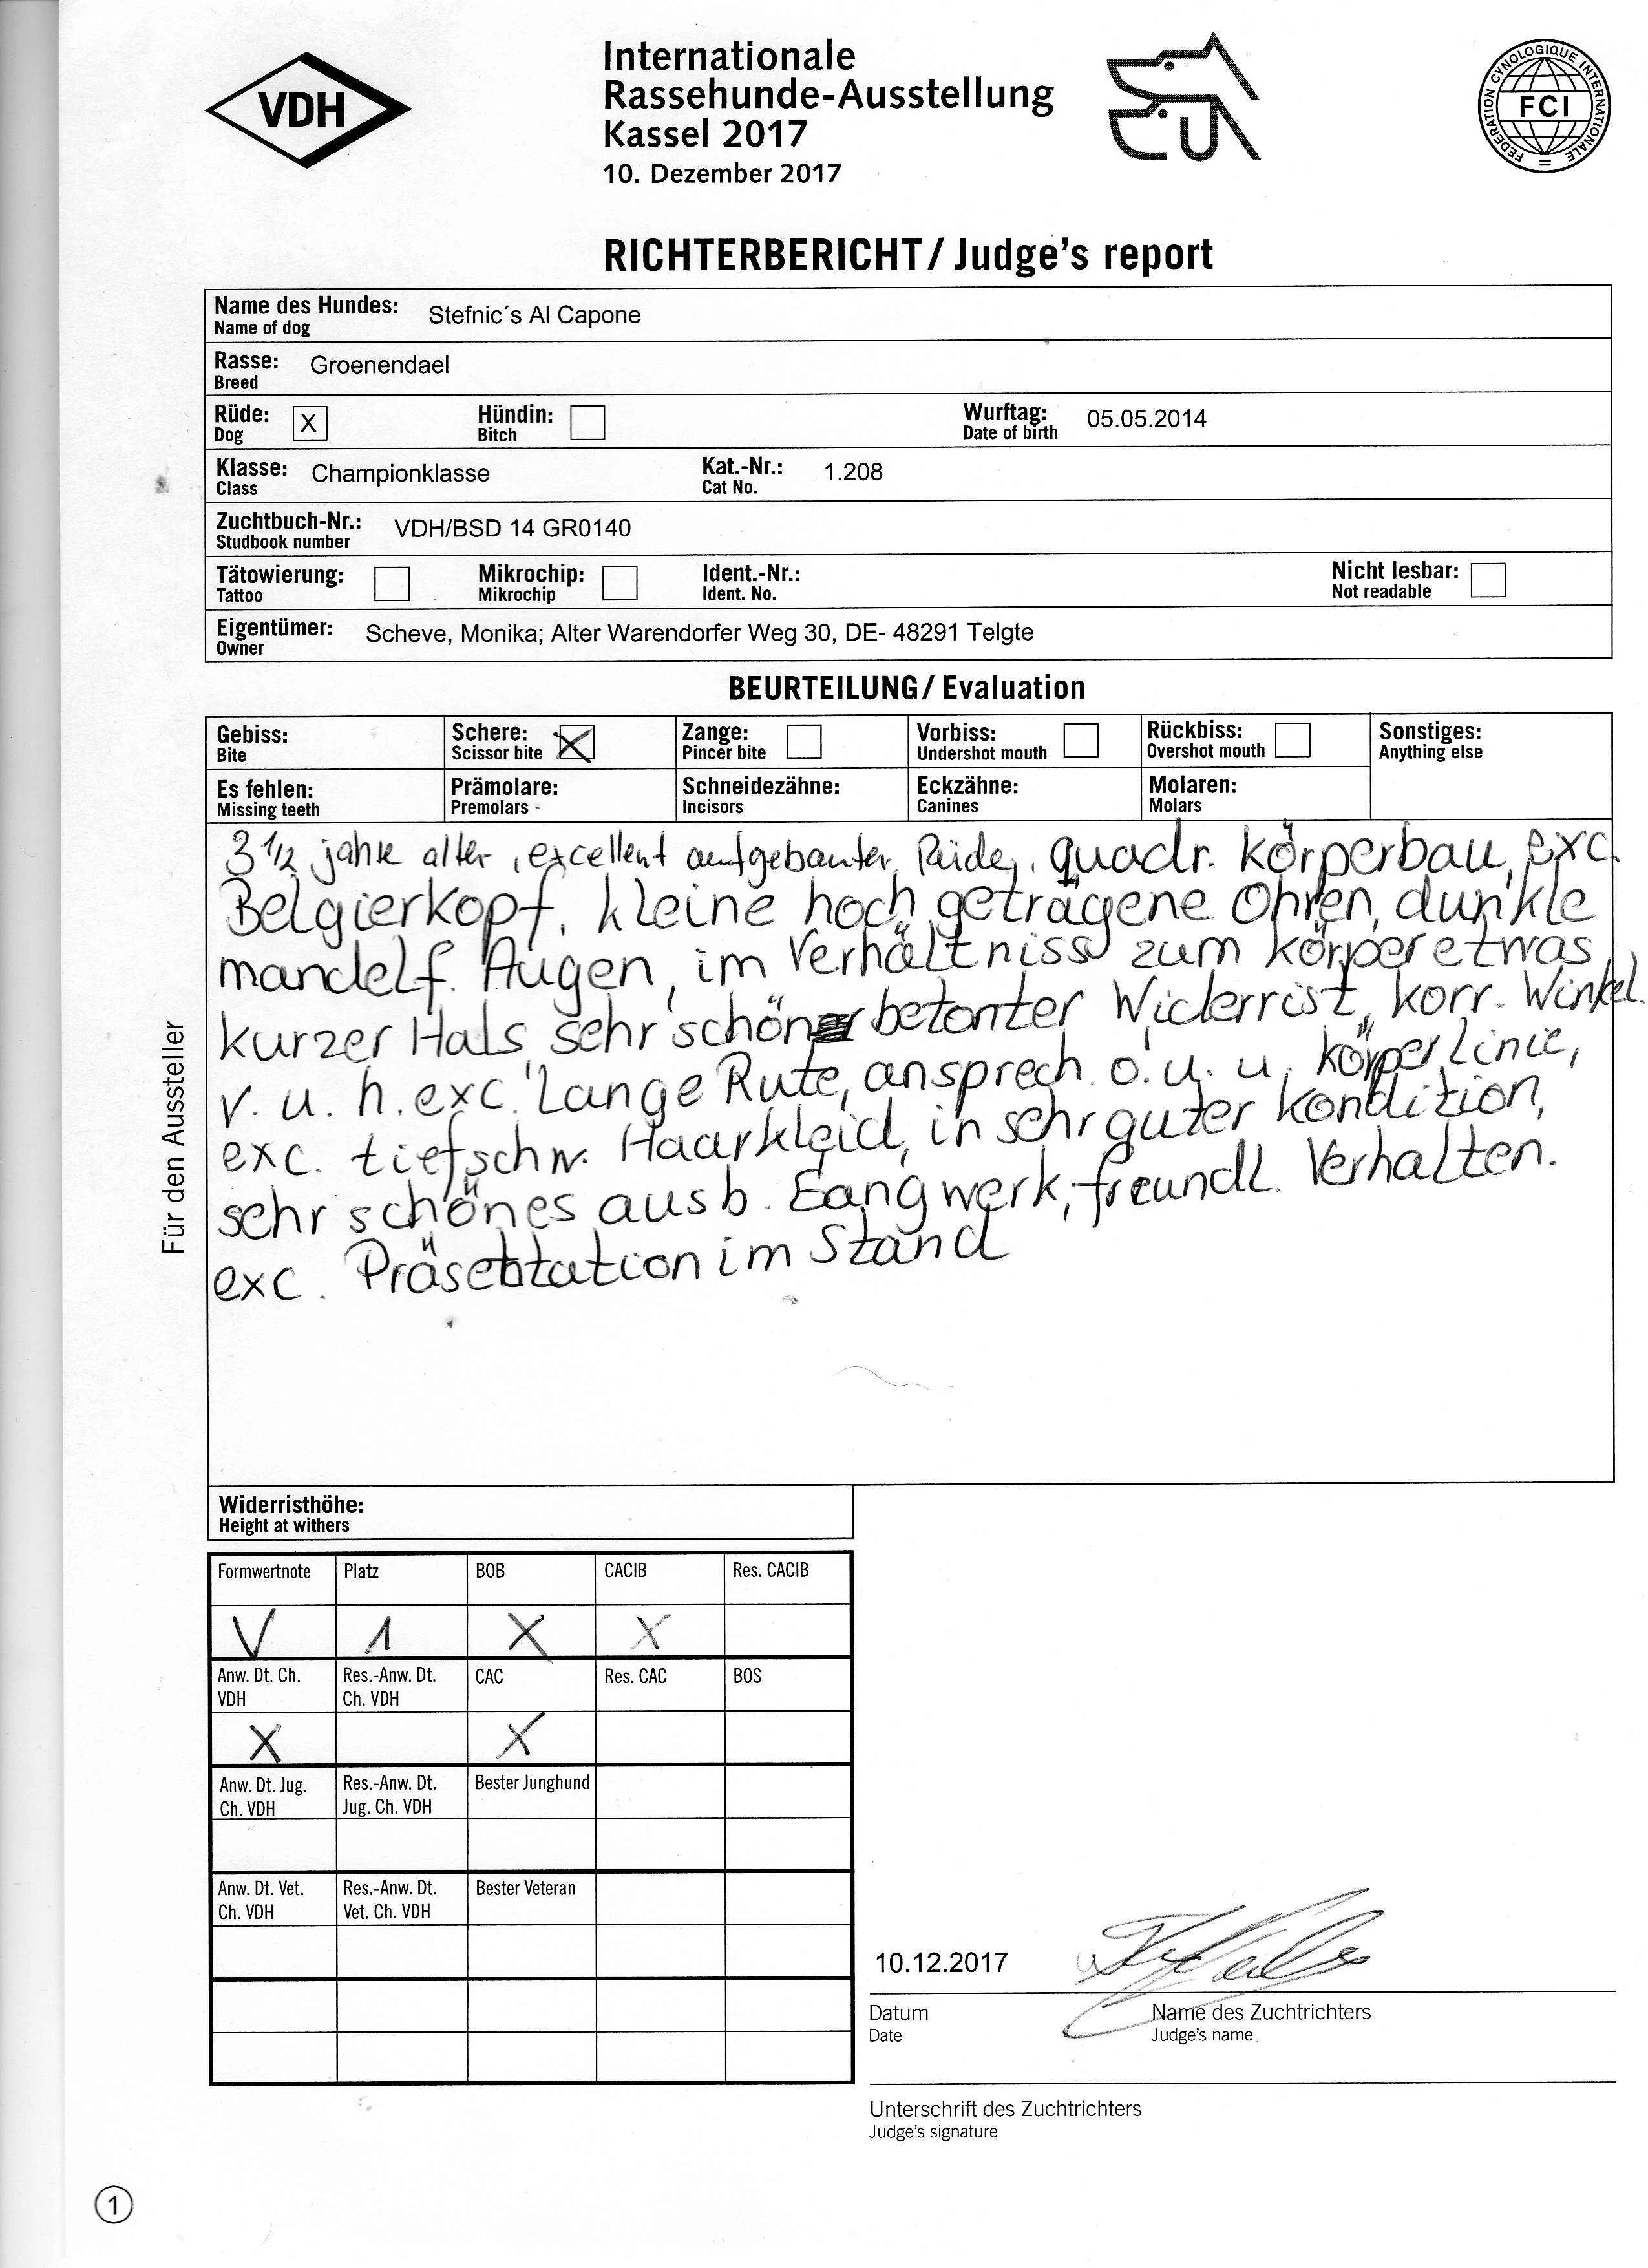 VDH
Internationale
Rassehunde-Ausstellung
Kassel 2017
10. Dezember 2017
FEDERATION CYNOLOGIQUE INTERNATIONALE
FCI
RICHTERBERICHT / Judge's report
Name des Hundes: Stefnic´s Al Capone
Name of dog
Rasse: Groenendael
Breed
Rüde: X Hündin: Wurftag: 05.05.2014
Dog Bitch Date of birth
Klasse: Championklasse Kat.-Nr.: 1.208
Class Cat No.
Zuchtbuch-Nr.: VDH/BSD 14 GR0140
Studbook number
Tätowierung: Mikrochip: Ident.-Nr.: Nicht lesbar:
Tattoo Mikrochip Ident. No. Not readable
Eigentümer: Scheve, Monika; Alter Warendorfer Weg 30, DE- 48291 Telgte
Owner
BEURTEILUNG / Evaluation
Gebiss: Schere: X Zange: Vorbiss: Rückbiss: Sonstiges:
Bite Scissor bite Pincer bite Undershot mouth Overshot mouth Anything else
Es fehlen: Prämolare: Schneidezähne: Eckzähne: Molaren:
Missing teeth Premolars Incisors Canines Molars
3 1/2 jahre alter, excellent aufgebauter Rüde, quadr. körperbau, exc.
Belgierkopf, kleine hoch getragene Ohren, dunkle
mandelf. Augen, im Verhältniss zum körper etwas
kurzer Hals, sehr schön betonter Widerrist, korr. Winkel.
v. u. h. exc. Lange Rute, ansprech. o. u. u. körperlinie,
exc. tiefschw. Haarkleid, in sehr guter kondition,
sehr schönes ausb. Gangwerk, freundl. Verhalten.
exc. Präsentation im Stand
Für den Aussteller
Widerristhöhe:
Height at withers
Formwertnote Platz BOB CACIB Res. CACIB
V 1 X X
Anw. Dt. Ch. Res.-Anw. Dt. CAC Res. CAC BOS
VDH Ch. VDH
X X
Anw. Dt. Jug. Res.-Anw. Dt. Bester Junghund
Ch. VDH Jug. Ch. VDH
Anw. Dt. Vet. Res.-Anw. Dt. Bester Veteran
Ch. VDH Vet. Ch. VDH
10.12.2017
Datum Name des Zuchtrichters
Date Judge's name
Unterschrift des Zuchtrichters
Judge's signature
1